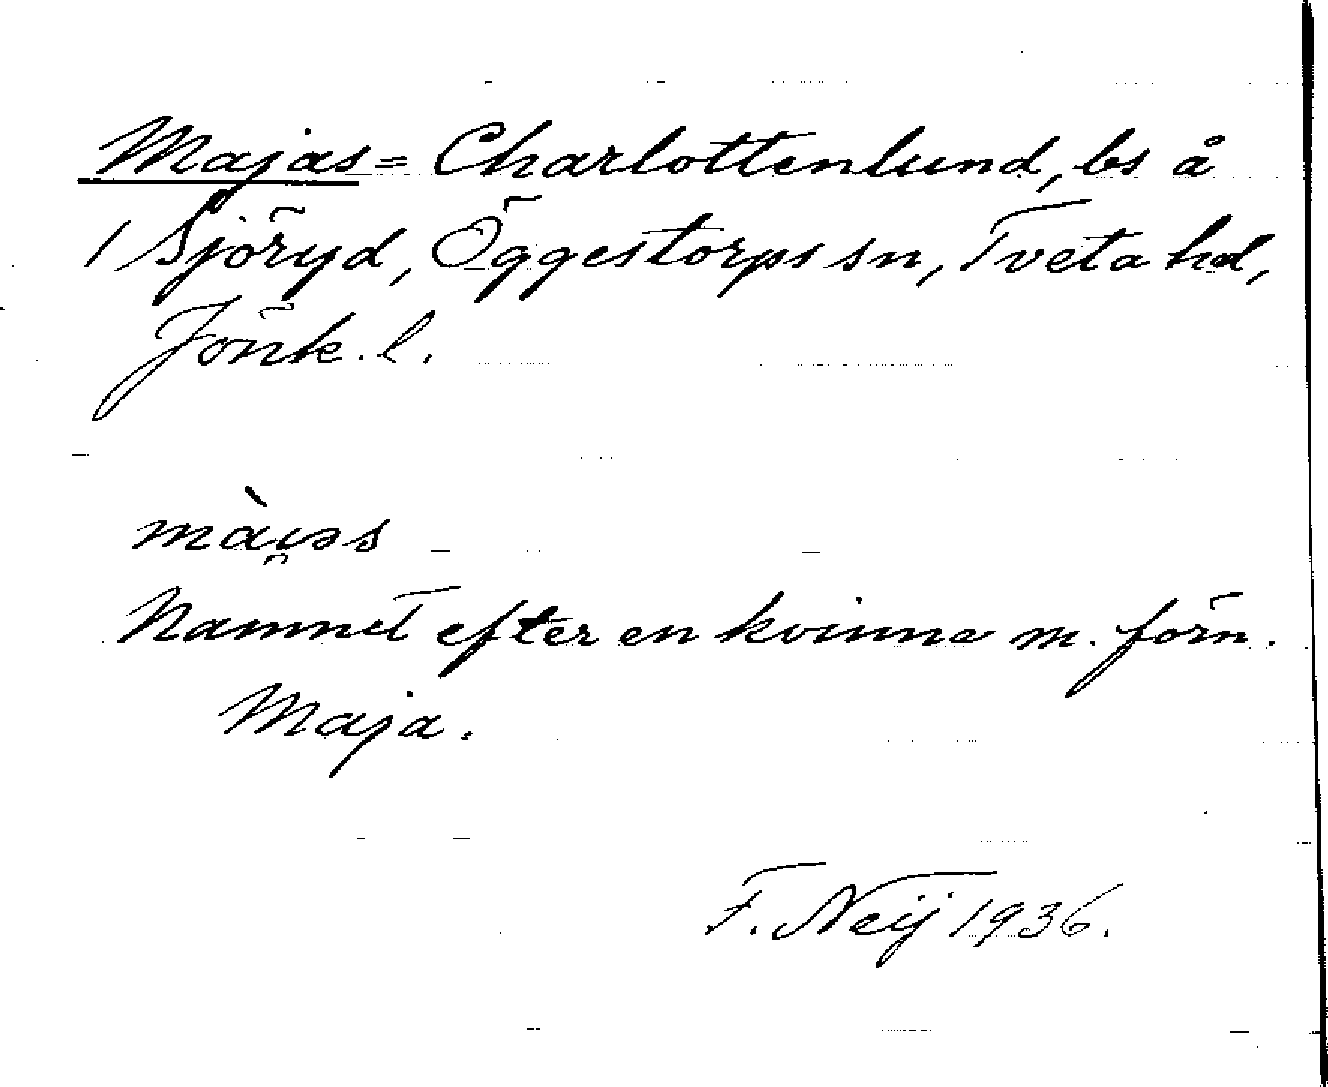 Majas = Charlottenlund, bs å
1 Sjöryd, Öggestorps sn, Tveta hd,
Jönk. l.
mài̯əs
Namnet efter en kvinna m. förn.
Maja.
F. Neij 1936.